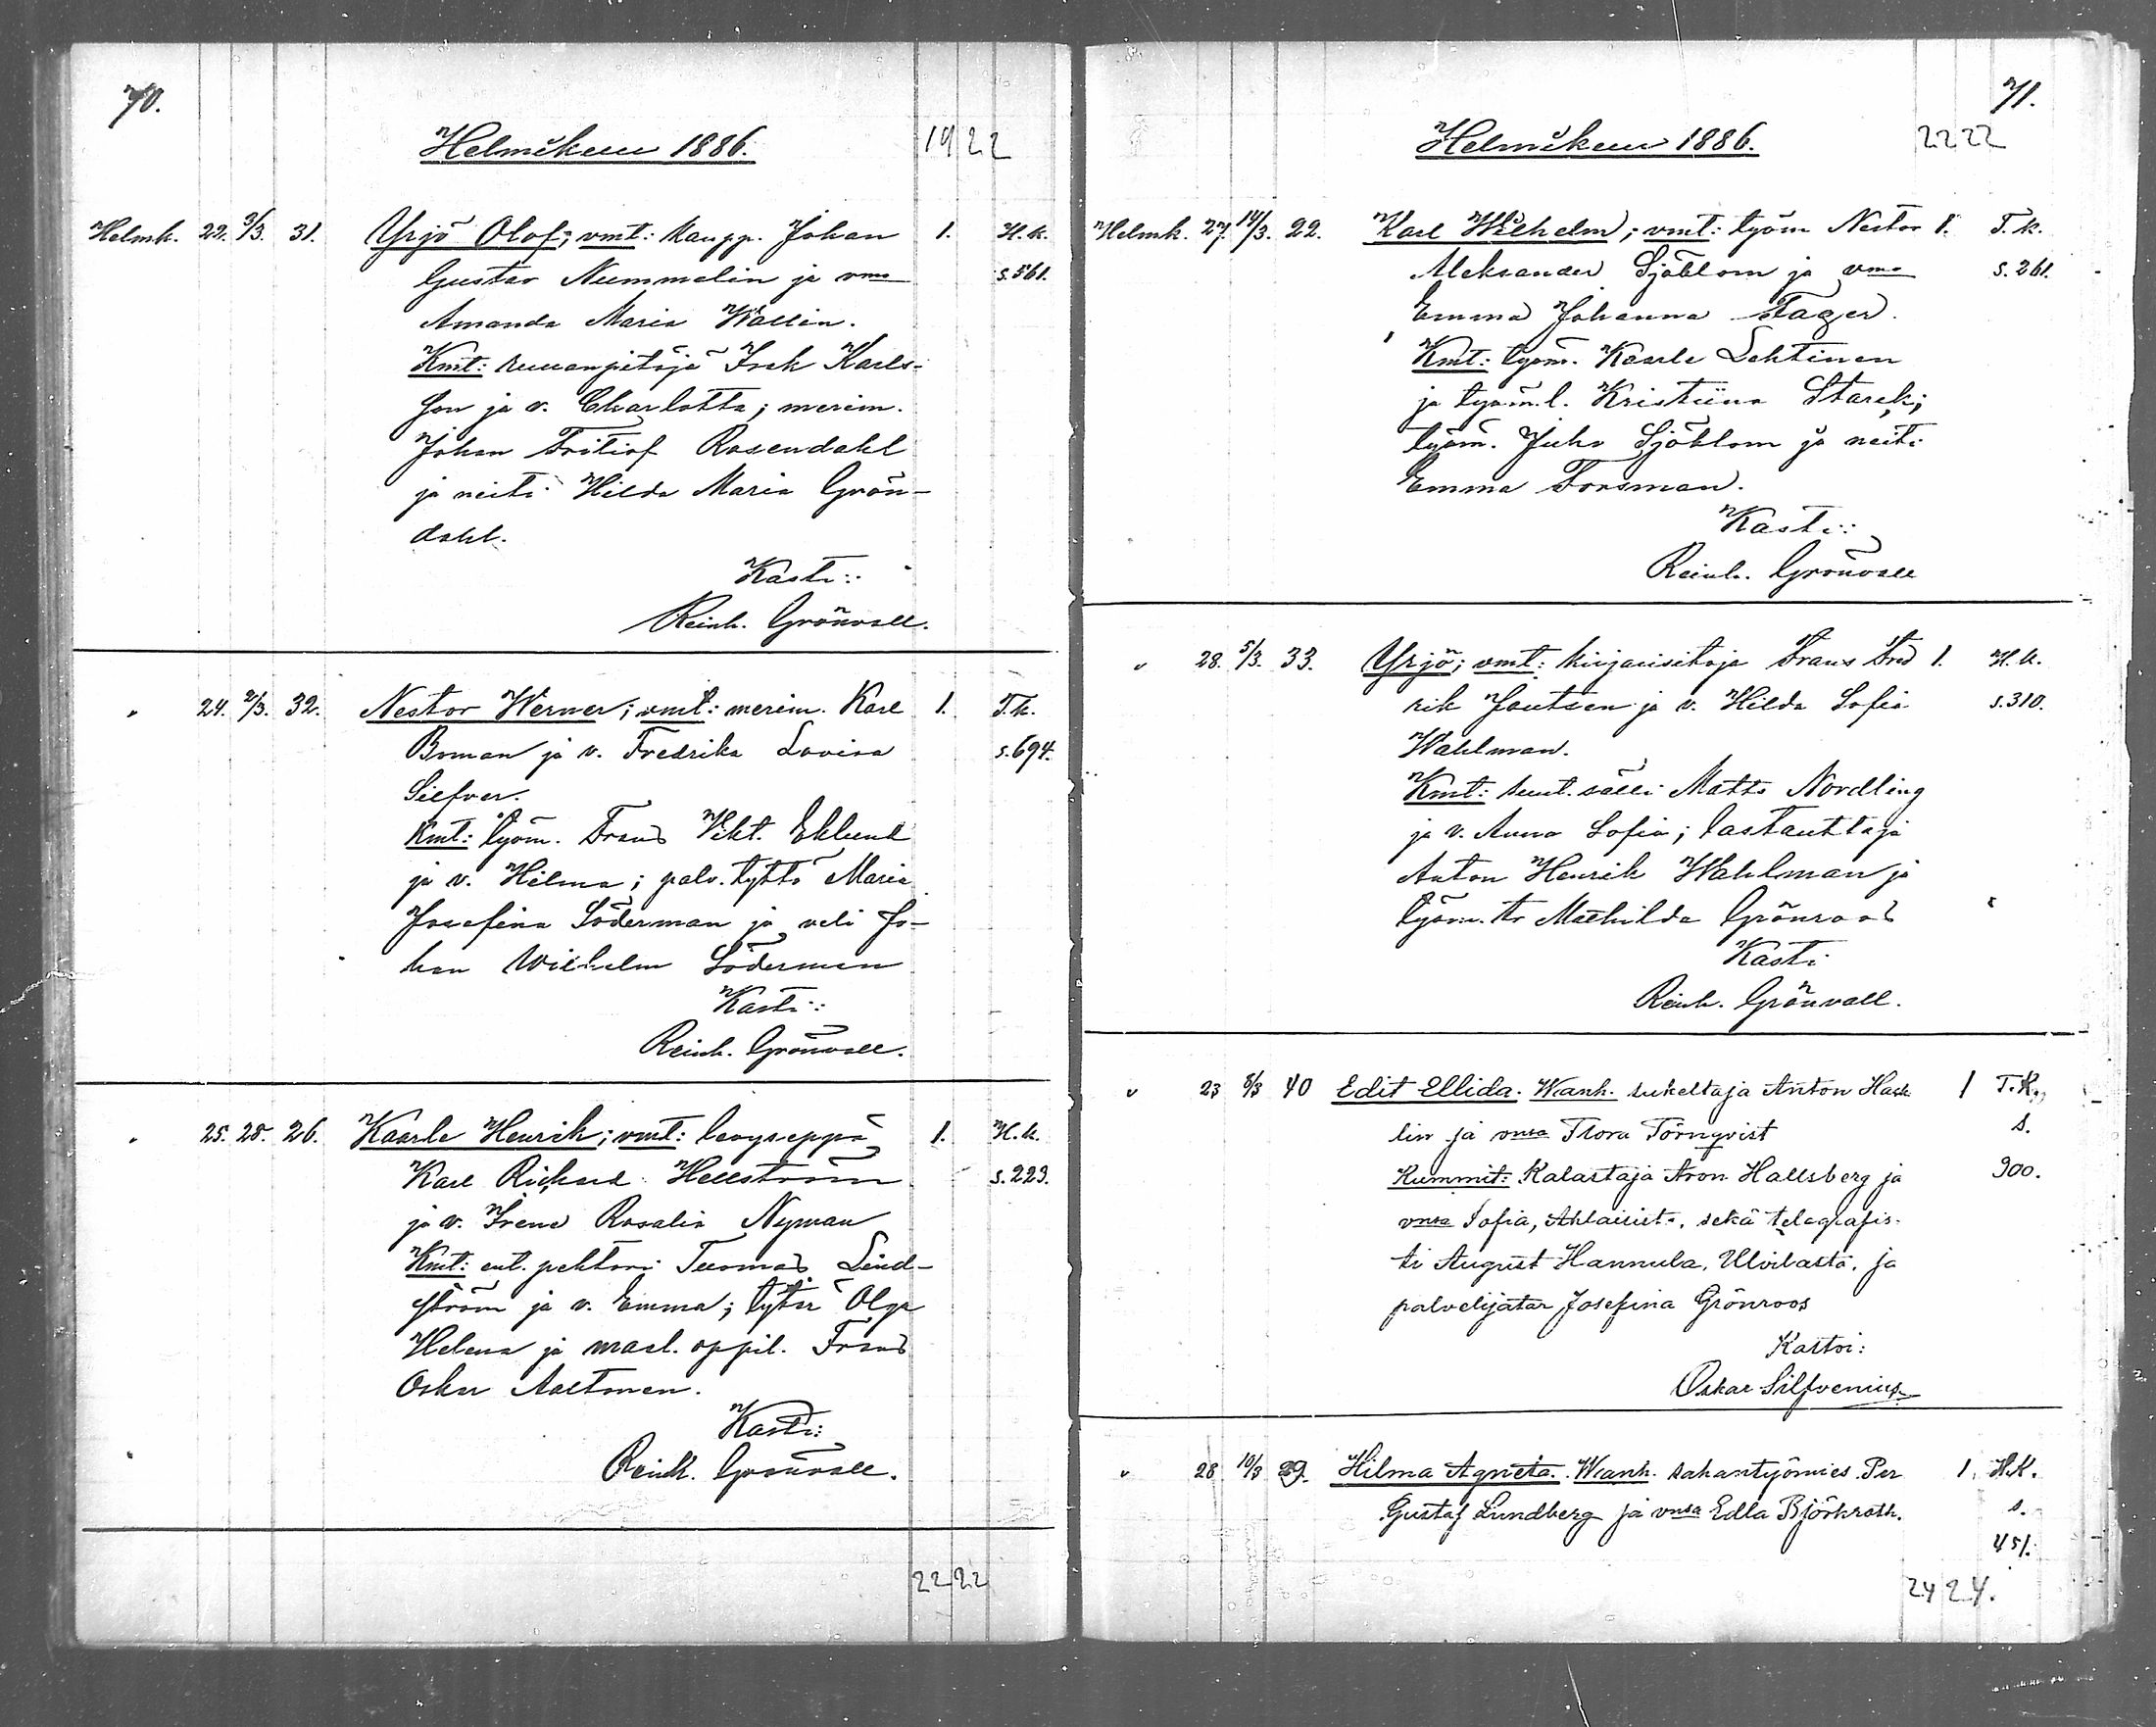 70.
Helmikuu 1886. 19 22
Helmk. 22. 9/3. 31. Yrjö Olof; vmt: kaupp. Johan 1. H.k.
Gustav Nummelin ja vmo s. 561.
Amanda Maria Wallin.
Kmt: ruuanpitäjä Isak Karls-
son ja v. Charlotta; merim.
Johan Fritiof Rosendahl
ja neiti Hilda Maria Grön-
dahl.
Kasti:
Reinh. Grönvall.
" 24. 2/3. 32. Nestor Werner; vmt: merim. Karl 1. T.k.
Boman ja v. Fredrika Lovisa s. 694.
Silfver.
Kmt: työm. Frans Vikt. Eklund
ja v. Hilma; palv. tyttö Maria
Josefina Söderman ja veli Jo-
han Wilhelm Söderman
Kasti:
Reinh. Grönvall.
" 25. 28. 26. Kaarle Henrik; vmt: levyseppä 1. H.k.
Karl Rickard Hellström s. 223.
ja v. Irene Rosalia Nyman
Kmt: ent. pehtori Tuomas Lind-
ström ja v. Emma; tytär Olga
Helena ja maal. oppil. Frans
Oskar Aaltonen.
Kasti:
Reinh. Grönvall.
22 22
71.
Helmikuu 1886. 22 22
Helmk. 27. 14/3. 22. Karl Wilhelm; vmt: työm Nestor 1. T.k.
Aleksander Sjöblom ja vmo s. 261.
Emma Johanna Fager.
Kmt: työm. Kaarle Lehtinen
ja työm.l. Kristiina Starck;
työm. Juho Sjöblom ja neiti
Emma Forsman.
Kasti:
Reinh. Grönvall
" 28. 5/3. 33. Yrjö; vmt: kirjansitoja Frans Fred 1. H.k.
rik Joutsen ja v. Hilda Sofia s. 310.
Wahlman.
Kmt: suut. sälli Matts Nordling
ja v. Anna Sofia; lastauttaja
Anton Henrik Wahlman ja
työm. tr Mathilda Grönroos
Kasti
Reinh. Grönvall.
" 23 8/3 40 Edit Ellida. Wanh. sukeltaja Anton Hack 1 T.K.
lin ja vmsa Flora Törnqvist s.
Kummit: Kalastaja Aron Hallsberg ja 900.
vmsa Sofia, Ahlaisista, sekä telegrafis-
ti August Hannula, Ulvilasta, ja
palvelijatar Josefina Grönroos
Kastoi:
Oskar Silfvenius
" 28 10/3 29. Hilma Agneta. Wanh. sahantyömies Per 1 H.K.
Gustaf Lundberg ja vmsa Edla Björkroth. s.
451.
24 24.